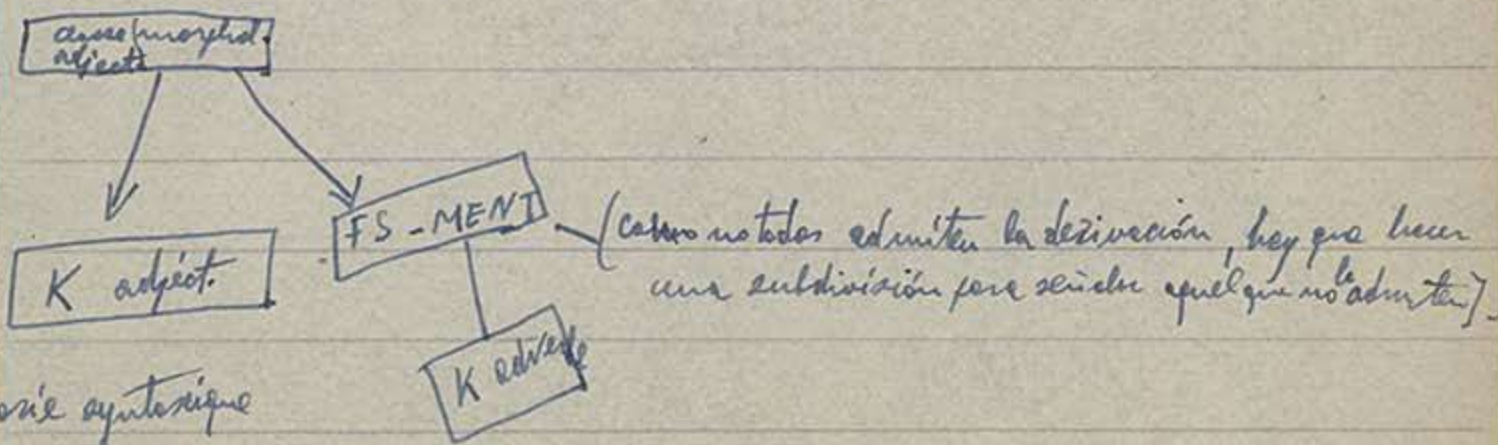 classe morphol.
adject.
FS-MENT
(como no todos admiten la derivación, hay que hacer
K adject.
una subdivisión para señalar aquel que no la admiten).
K adverbe
syntaxique